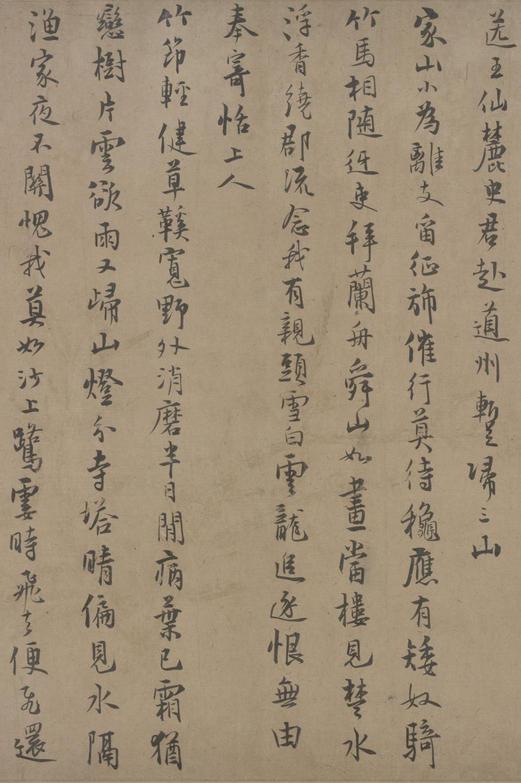 送王仙麓史君赴道州暫歸三山
家山小為離支留征旆催行莫待穐應有矮奴騎
竹馬相随迓吏拜蘭舟舜山如畫當樓見楚水
浮香繞郡流念我有親頭雪白雲龍追逐恨無由
奉寄恬上人
竹節輕健草鞵寬野外消磨半日閒病葉已霜猶
戀樹片雲欲雨又歸山燈分寺塔晴偏見水隔
漁家夜不關愧我莫如沙上鷺霎時飛去便飛還